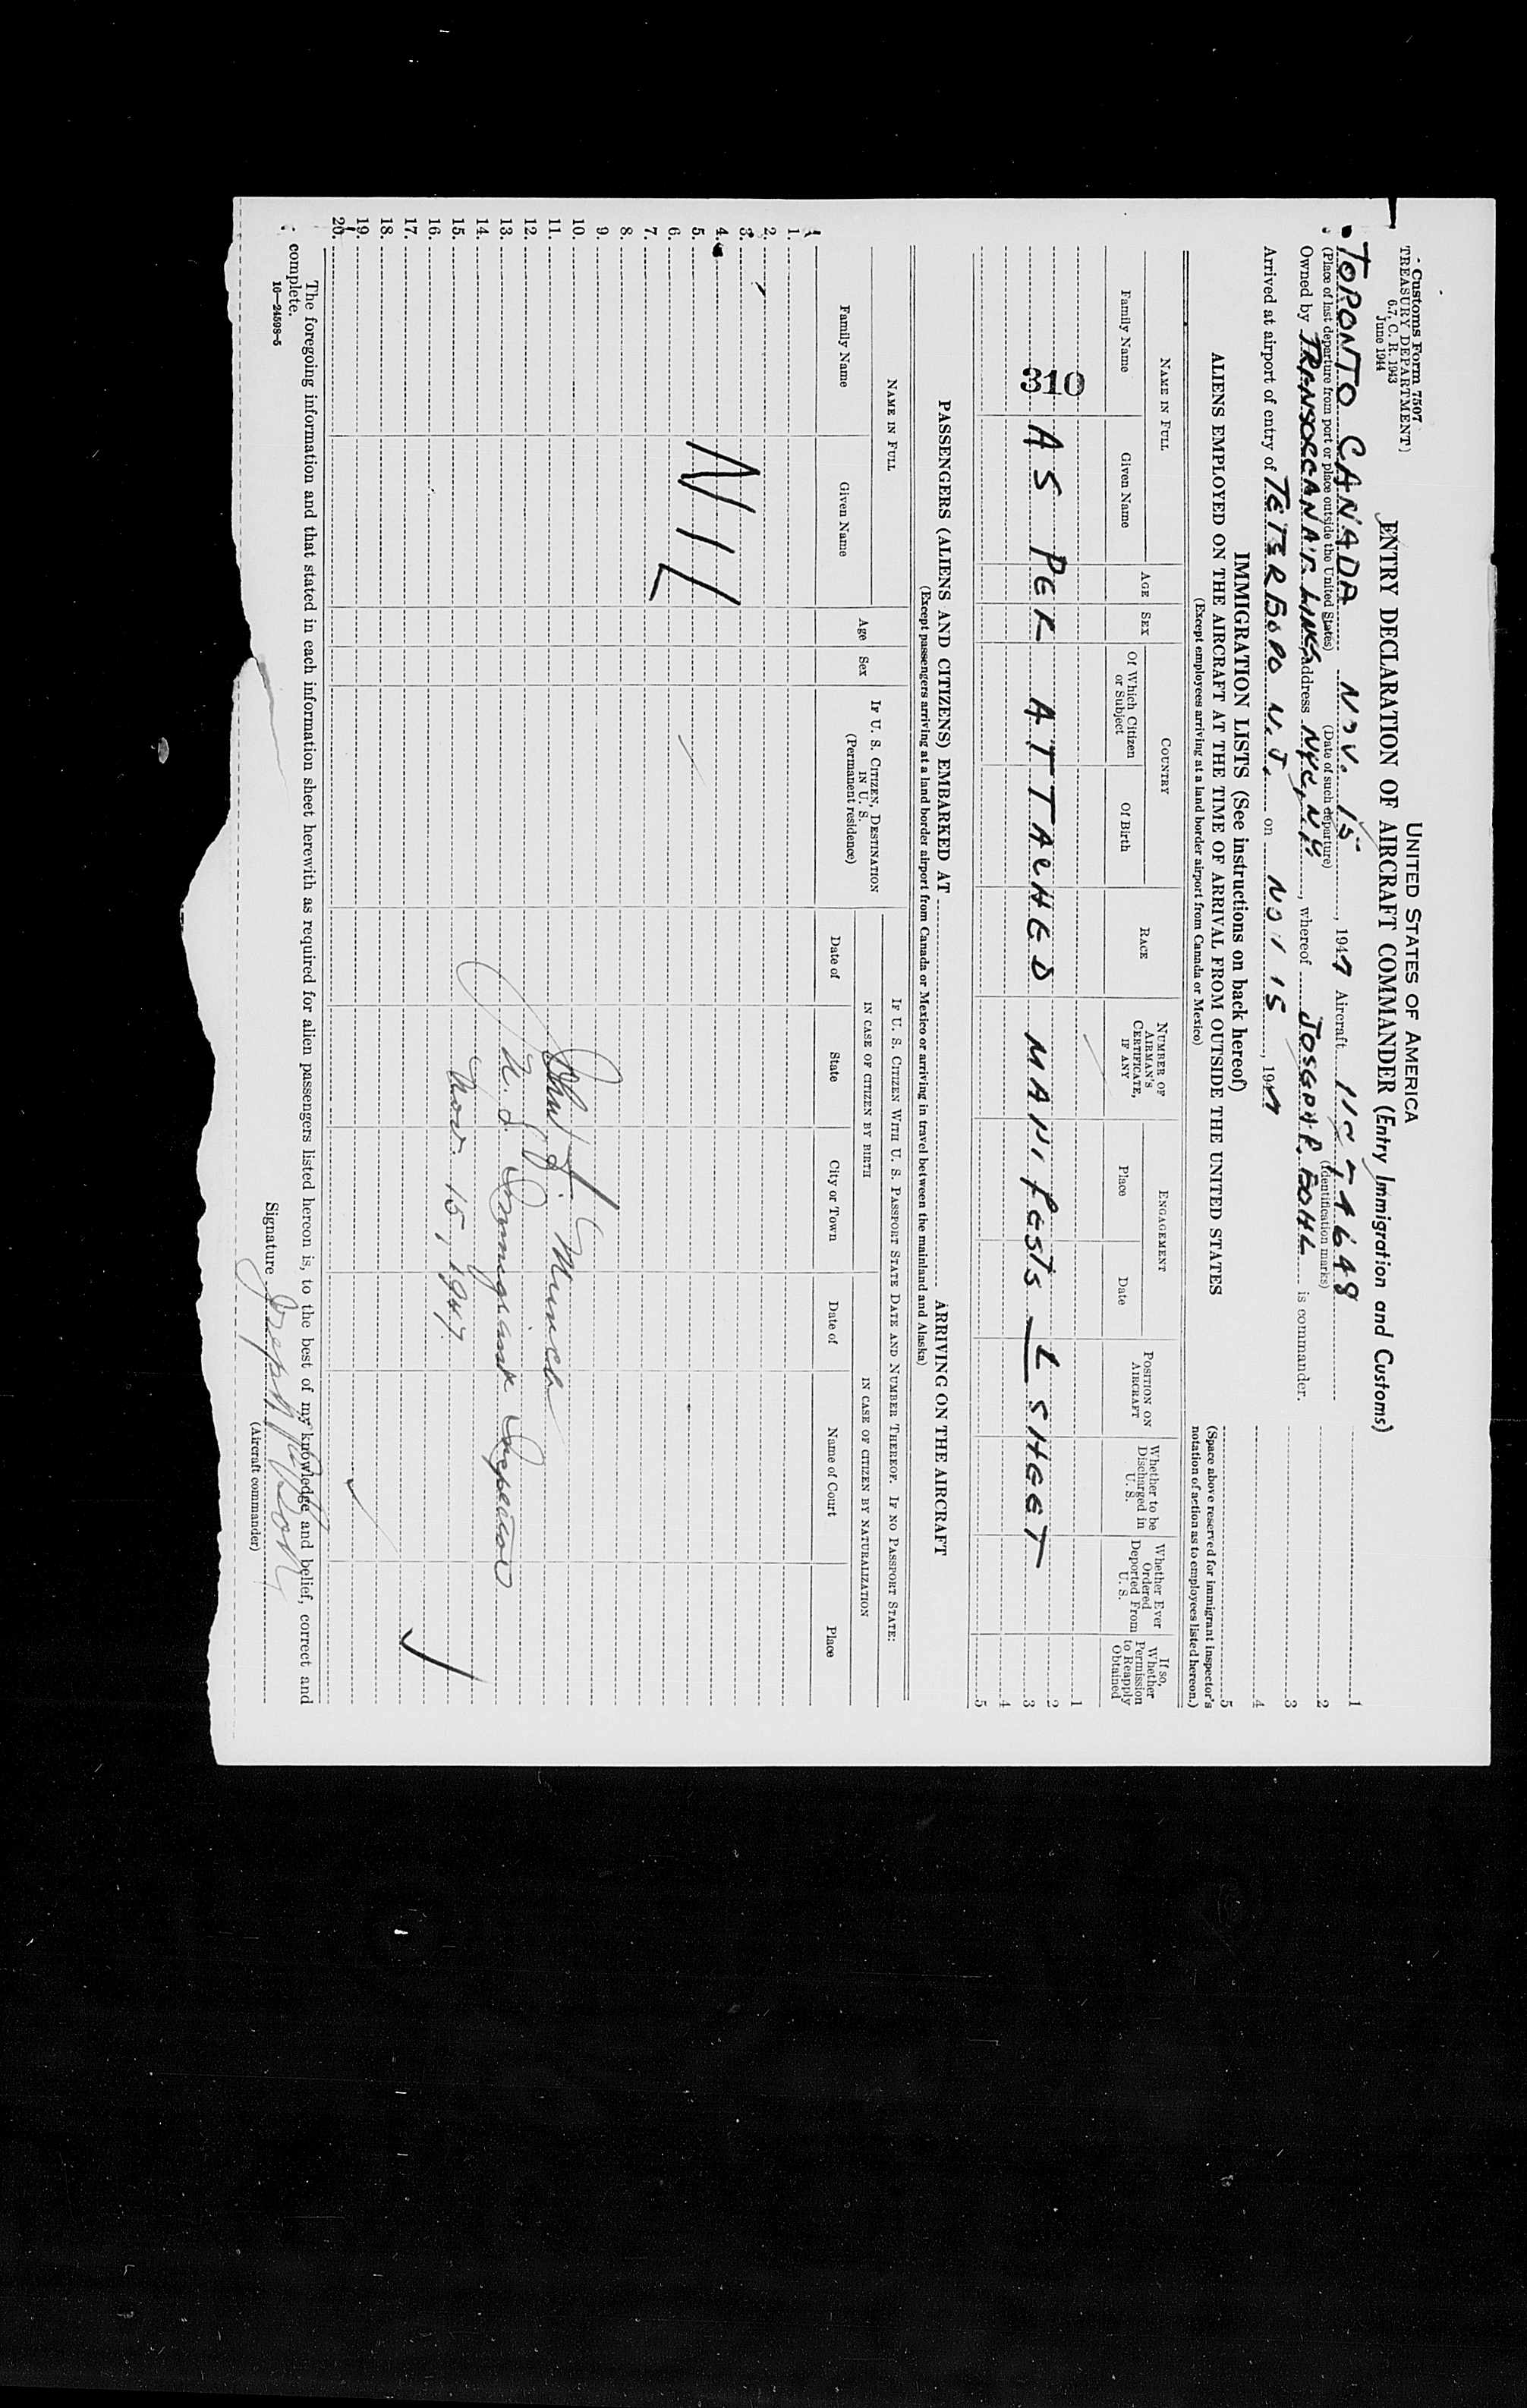 - Customs Form 7507
TREASURY DEPARTMENT
6.7, C. R. 1943
June 1944
UNITED STATES OF AMERICA
ENTRY DECLARATION OF AIRCRAFT COMMANDER (Entry Immigration and Customs)
TORONTO CANADA NOV. 15, 1947 Aircraft
(Place of last departure from port or place outside the United States) (Date of such departure) (Identification marks)
Owned by TRANSOCEAN AIR LINES, address NYC, N.Y., whereof JOSEPH P. BOHL is commander.
Arrived at airport of entry of TETERBORO N.J. on NOV 15, 1947
1
2
3
4
5
(Space above reserved for immigrant inspector's notation of action as to employees listed hereon.)
IMMIGRATION LISTS (See instructions on back hereof)
ALIENS EMPLOYED ON THE AIRCRAFT AT THE TIME OF ARRIVAL FROM OUTSIDE THE UNITED STATES
(Except employees arriving at a land border airport from Canada or Mexico)
NAME IN FULL
Family Name
Given Name
AGE
SEX
COUNTRY
Of Which Citizen or Subject
Of Birth
RACE
NUMBER OF AIRMAN'S CERTIFICATE, IF ANY
ENGAGEMENT
Place
Date
POSITION ON AIRCRAFT
Whether to be Discharged in U. S.
Whether Ever Ordered Deported From U. S.
If so, Whether Permission to Reapply Obtained
1
2
310 AS PER ATTACHED MANIFESTS 1 SHEET 3
4
5
PASSENGERS (ALIENS AND CITIZENS) EMBARKED AT ARRIVING ON THE AIRCRAFT
(Except passengers arriving at a land border airport from Canada or Mexico or arriving in travel between the mainland and Alaska)
NAME IN FULL
Family Name
Given Name
Age
Sex
IF U. S. CITIZEN, DESTINATION IN U. S.
(Permanent residence)
IF U. S. CITIZEN WITH U. S. PASSPORT STATE DATE AND NUMBER THEREOF. IF NO PASSPORT STATE:
IN CASE OF CITIZEN BY BIRTH
IN CASE OF CITIZEN BY NATURALIZATION
Date of
State
City or Town
Date of
Name of Court
Place
1.
2.
3.
4.
5. NIL
6.
7.
8.
9.
10.
11. John J.
12.
13. U.S. Immigrant Inspector
14.
15. Nov. 15, 1947.
16.
17.
18.
19.
20.
The foregoing information and that stated in each information sheet herewith as required for alien passengers listed hereon is, to the best of my knowledge and belief, correct and
complete.
16—24598-5
Signature Joseph P. Bohl
(Aircraft commander)